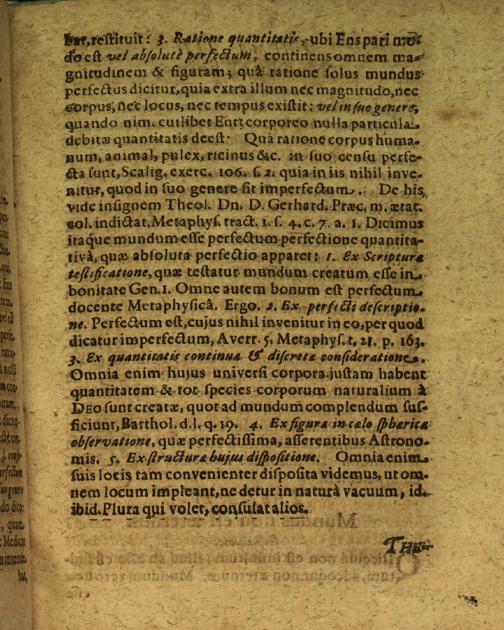 bat, restituit: 3. Ratione quantitatis, ubi Ens pari mo-
do est vel absolutè perfectum, continens omnem ma-
gnitudinem & figuram; quâ ratione solus mundus
perfectus dicitur, quia extra illum nec magnitudo, nec
corpus, nec locus, nec tempus existit: vel in suo genere,
quando nim. cuilibet Enti corporeo nulla particula
debitæ quantitatis deest. Quâ ratione corpus huma-
num, animal, pulex, ricinus &c. in suo censu perfe-
cta sunt, Scalig. exerc. 106. s. 2. quia in iis nihil inve-
nitur, quod in suo genere sit imperfectum. De his
vide insignem Theol. Dn. D. Gerhard. Præc. m. ætat.
col. indictat. Metaphys. tract. 1. s. 4. c. 7. a. 1. Dicimus
itaque mundum esse perfectum perfectione quantita-
tivâ, quæ absoluta perfectio apparet: 1. Ex Scripturæ
testificatione, quæ testatur mundum creatum esse in
bonitate Gen. 1. Omne autem bonum est perfectum
docente Metaphysicâ. Ergo. 2. Ex perfecti descriptio-
ne. Perfectum est, cujus nihil invenitur in eo, per quod
dicatur imperfectum, Averr. 5. Metaphys. t. 21. p. 163.
3. Ex quantitatis continuæ & discretæ consideratione.
Omnia enim hujus universi corpora justam habent
quantitatem & tot species corporum naturalium à
DEO sunt creatæ, quot ad mundum complendum suf-
ficiunt, Barthol. d. l. q. 19. 4. Ex figuræ in cælo sphæricæ
observatione, quæ perfectissima, asserentibus Astrono-
mis. 5. Ex structuræ hujus dispositione. Omnia enim
suis locis tam convenienter disposita videmus, ut om-
nem locum impleant, ne detur in naturâ vacuum, id.
ibid. Plura qui volet, consulat alios.
THE-